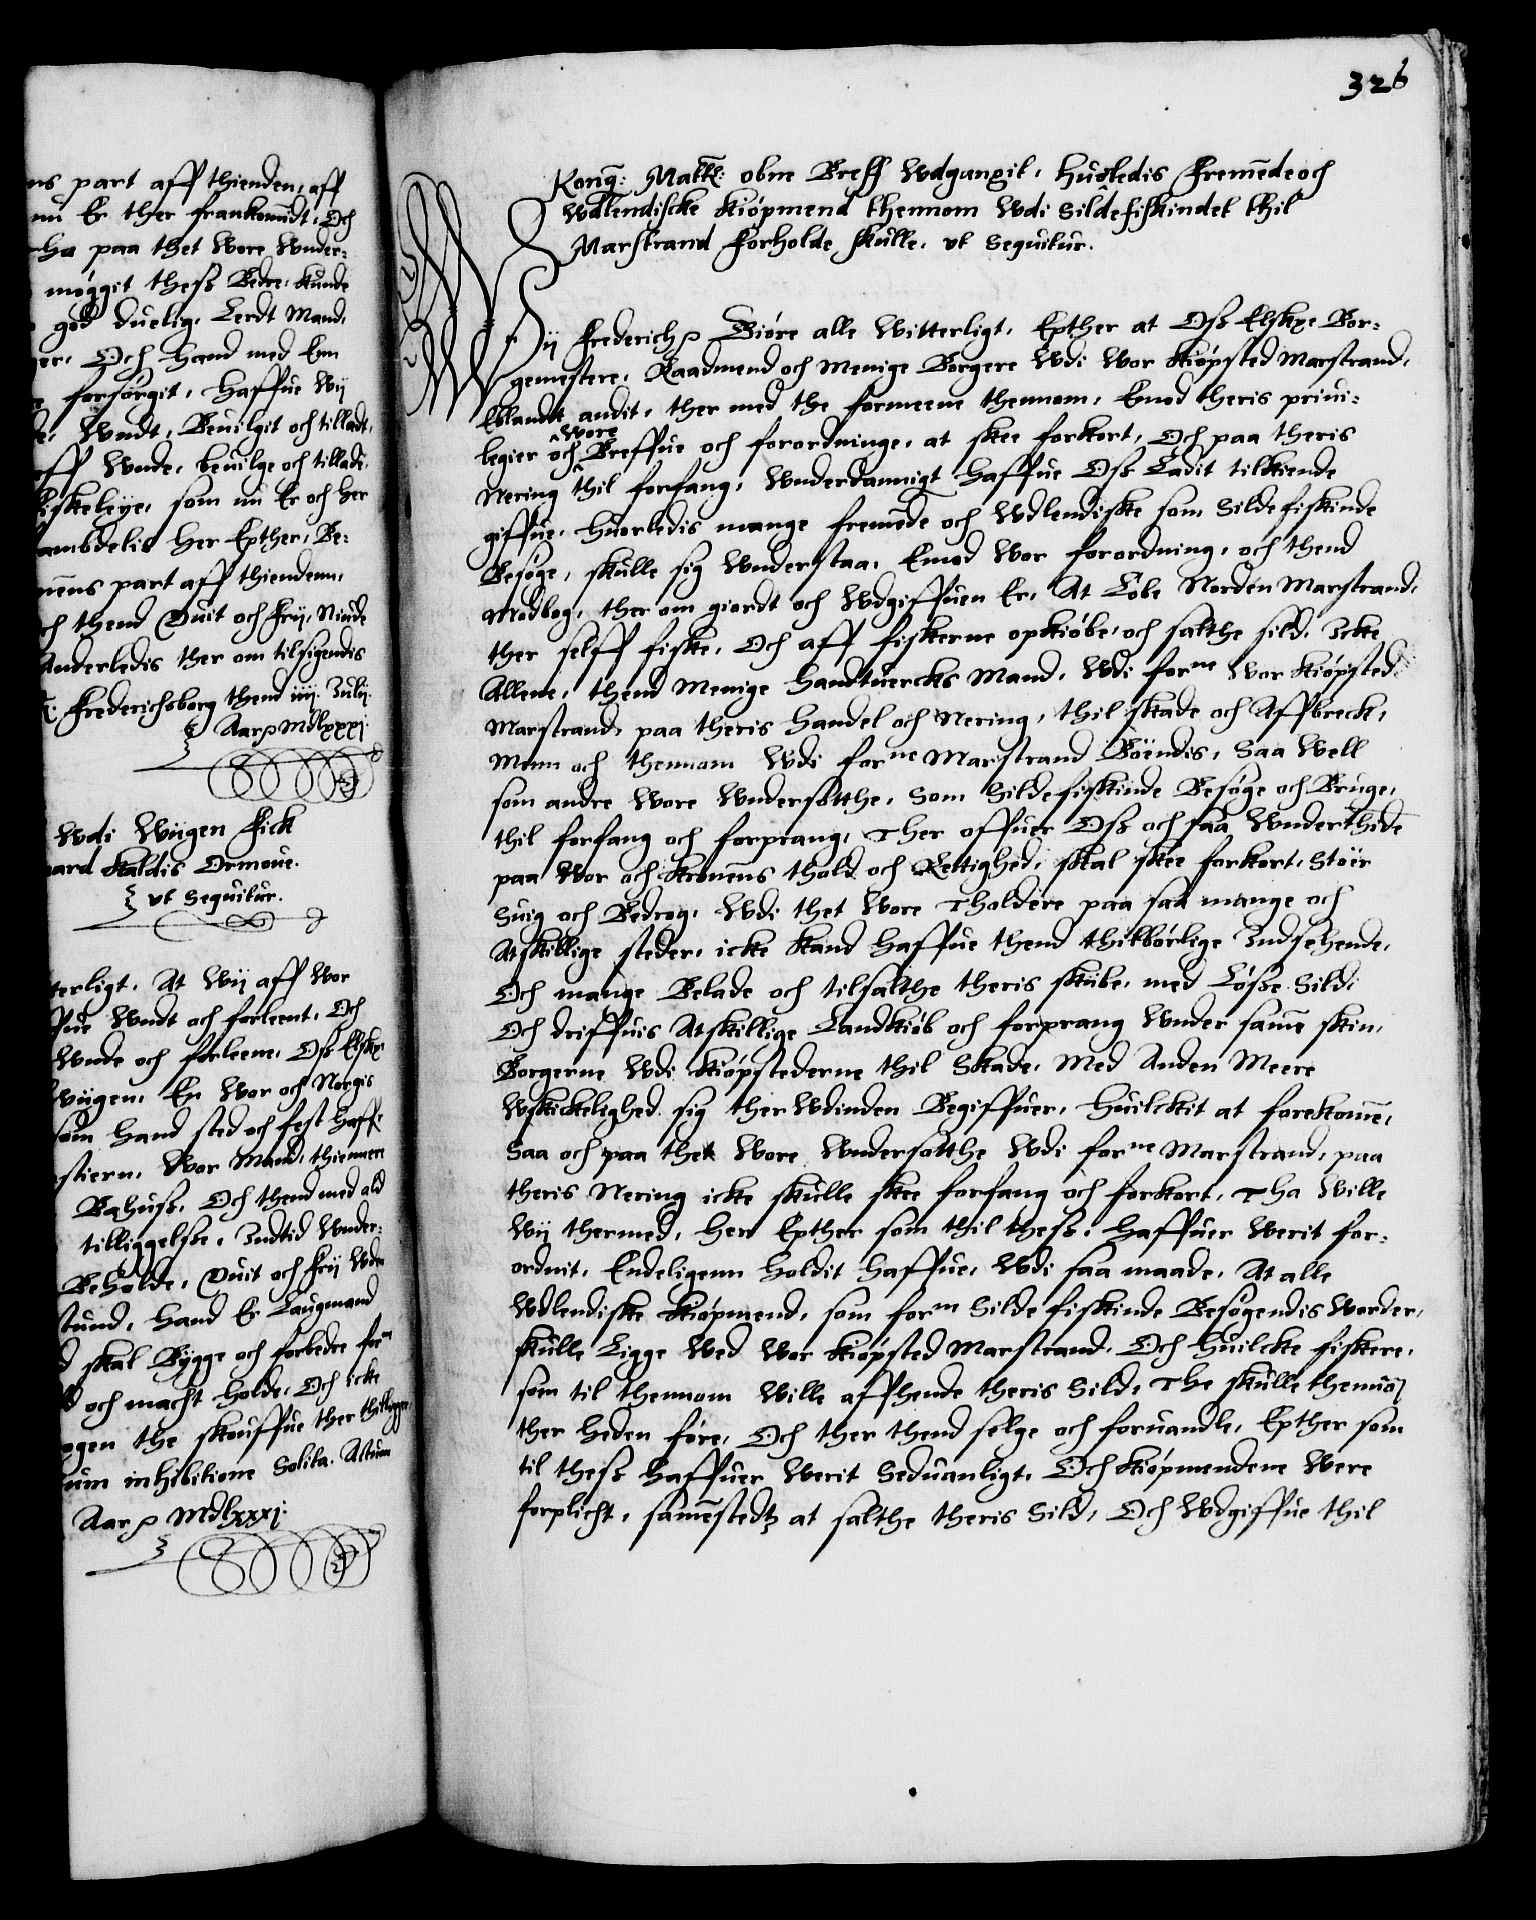 ns part aff thienden, aff
nu Er ther frankommdt, Och
ha paa thet wore Wnder:
møggit thess Bedre kunde
god duelig, Lerdt Mand,
Och hand med Een
forsørgit, Haffue wij
Wndt, Beuilgit och tilladt,
aff Wnde, beuilge och tillade,
fiskeleye, som nu Er och her
ambdelis her Epther, Be:
part aff thiendenn,
ch thend Quit och frij, Niude
Anderledis ther om tilsigendis
Frederichsborg thend iiij Julij
Aar p MDlxxxj
Wdi Wiigen Fick
gaard kaldis Ormoue.
vt sequitur.
terligt, At wij aff wor
ffue Wndt och forleent, Och
Wnde och forleene, Oss Elske
wiigen, En wor och Norgis
som hand sted och fest haffr
stiern, wor Mand, thiennere
Bahuss, Och thend med ald
tilliggelsse, Indtid Wnder:
Beholde, Quit och frij Wden
stund, hand Er Laugmand
skal Bygge och forbedre forne
och macht holde, Och icke
ogen the skouffue ther thilligger
um inhibitione Solita. Actum
Aar p MDlxxxj
326
Konng: Matt: obne Breff Wdgangit, huorledis Fremmede och
Wdlendiscke kiøpmend thennom Wdi Sildefiskindet thil
Marstrand forholde skulle, vt Sequitur.
Wij Frederich p Giøre alle witterligt, Epther at Oss Elskee Bor:
gemestere, Raadmend och Menige Borgere Wdi wor kiøpsted Marstrand,
Eblandt andit, ther med the formeene thennom, Emod theris priui:
legier och wore Breffue och forordninge, at skee forkort, Och paa theris
Nering thil forfang, Wnderdannigt haffue Oss Ladit tilkiende
giffue, huorledis mange fremmede och Wdlendiske som Sildefiskinde
Besøge, skulle sig Wnderstaa, Emod wor forordning, och thend
Modbog, ther om giordt och Wdgiffuen Er, At Løbe Norden Marstrand,
ther selff fiske, Och aff fiskerne opkiøbe, och salthe sild, Icke
Allene, thend Menige handtuercks Mand, Wdi forne wor kiøpsted
Marstrand, paa theris handel och Nering, thil skade och Affbreck,
Menn och thennom Wdi forne Marstrand Boendis, saa well
som andre wore Wndersotthe, som Sildefiskinde Besøge och Bruge,
thil forfang och forprang, Ther offuer Oss och saa Wnderthide
paa wor och kronens thold och Rettighed, skal skee forkort, Stoir
Suig och Bedrog, Wdi thet wore Tholdere paa saa mange och
Atskillige steder, icke kand haffue thend thilbørlige Indsehende,
Och mange Belade och tilsalthe theris skibe, med Løsse Sild,
Och driffuis Atskillige Landkiøb och forprang Wnder samme skin,
Borgerne Wdi kiøpstederne thil Skade, Med Anden Meere
Wskickelighed sig ther Wdinden Begiffuer, huilckit at forekomme,
Saa och paa thet wore Wndersotthe Wdi forne Marstrand, paa
theris Nering icke skulle skee forfang och forkort, Tha wille
wij thermed, her Epther som thil thess, haffuer werit for:
ordnit, Endeligenn holdit haffue, Wdi saa maade, At alle
Wdlendiske kiøpmend, som forne Silde fiskinde Besøgendis worder,
skulle Ligge wed wor kiøpsted Marstrand, Och huilcke fiskere,
som til thennom wille affhende theris Sild, The skulle thennom
ther heden føre, Och ther thend selge och foruandle, Epther som
til thess haffuer werit seduanligt, Och kiøpmendene were
forplicht, sammestedtz at salthe theris Sild, Och Wdgiffue thil